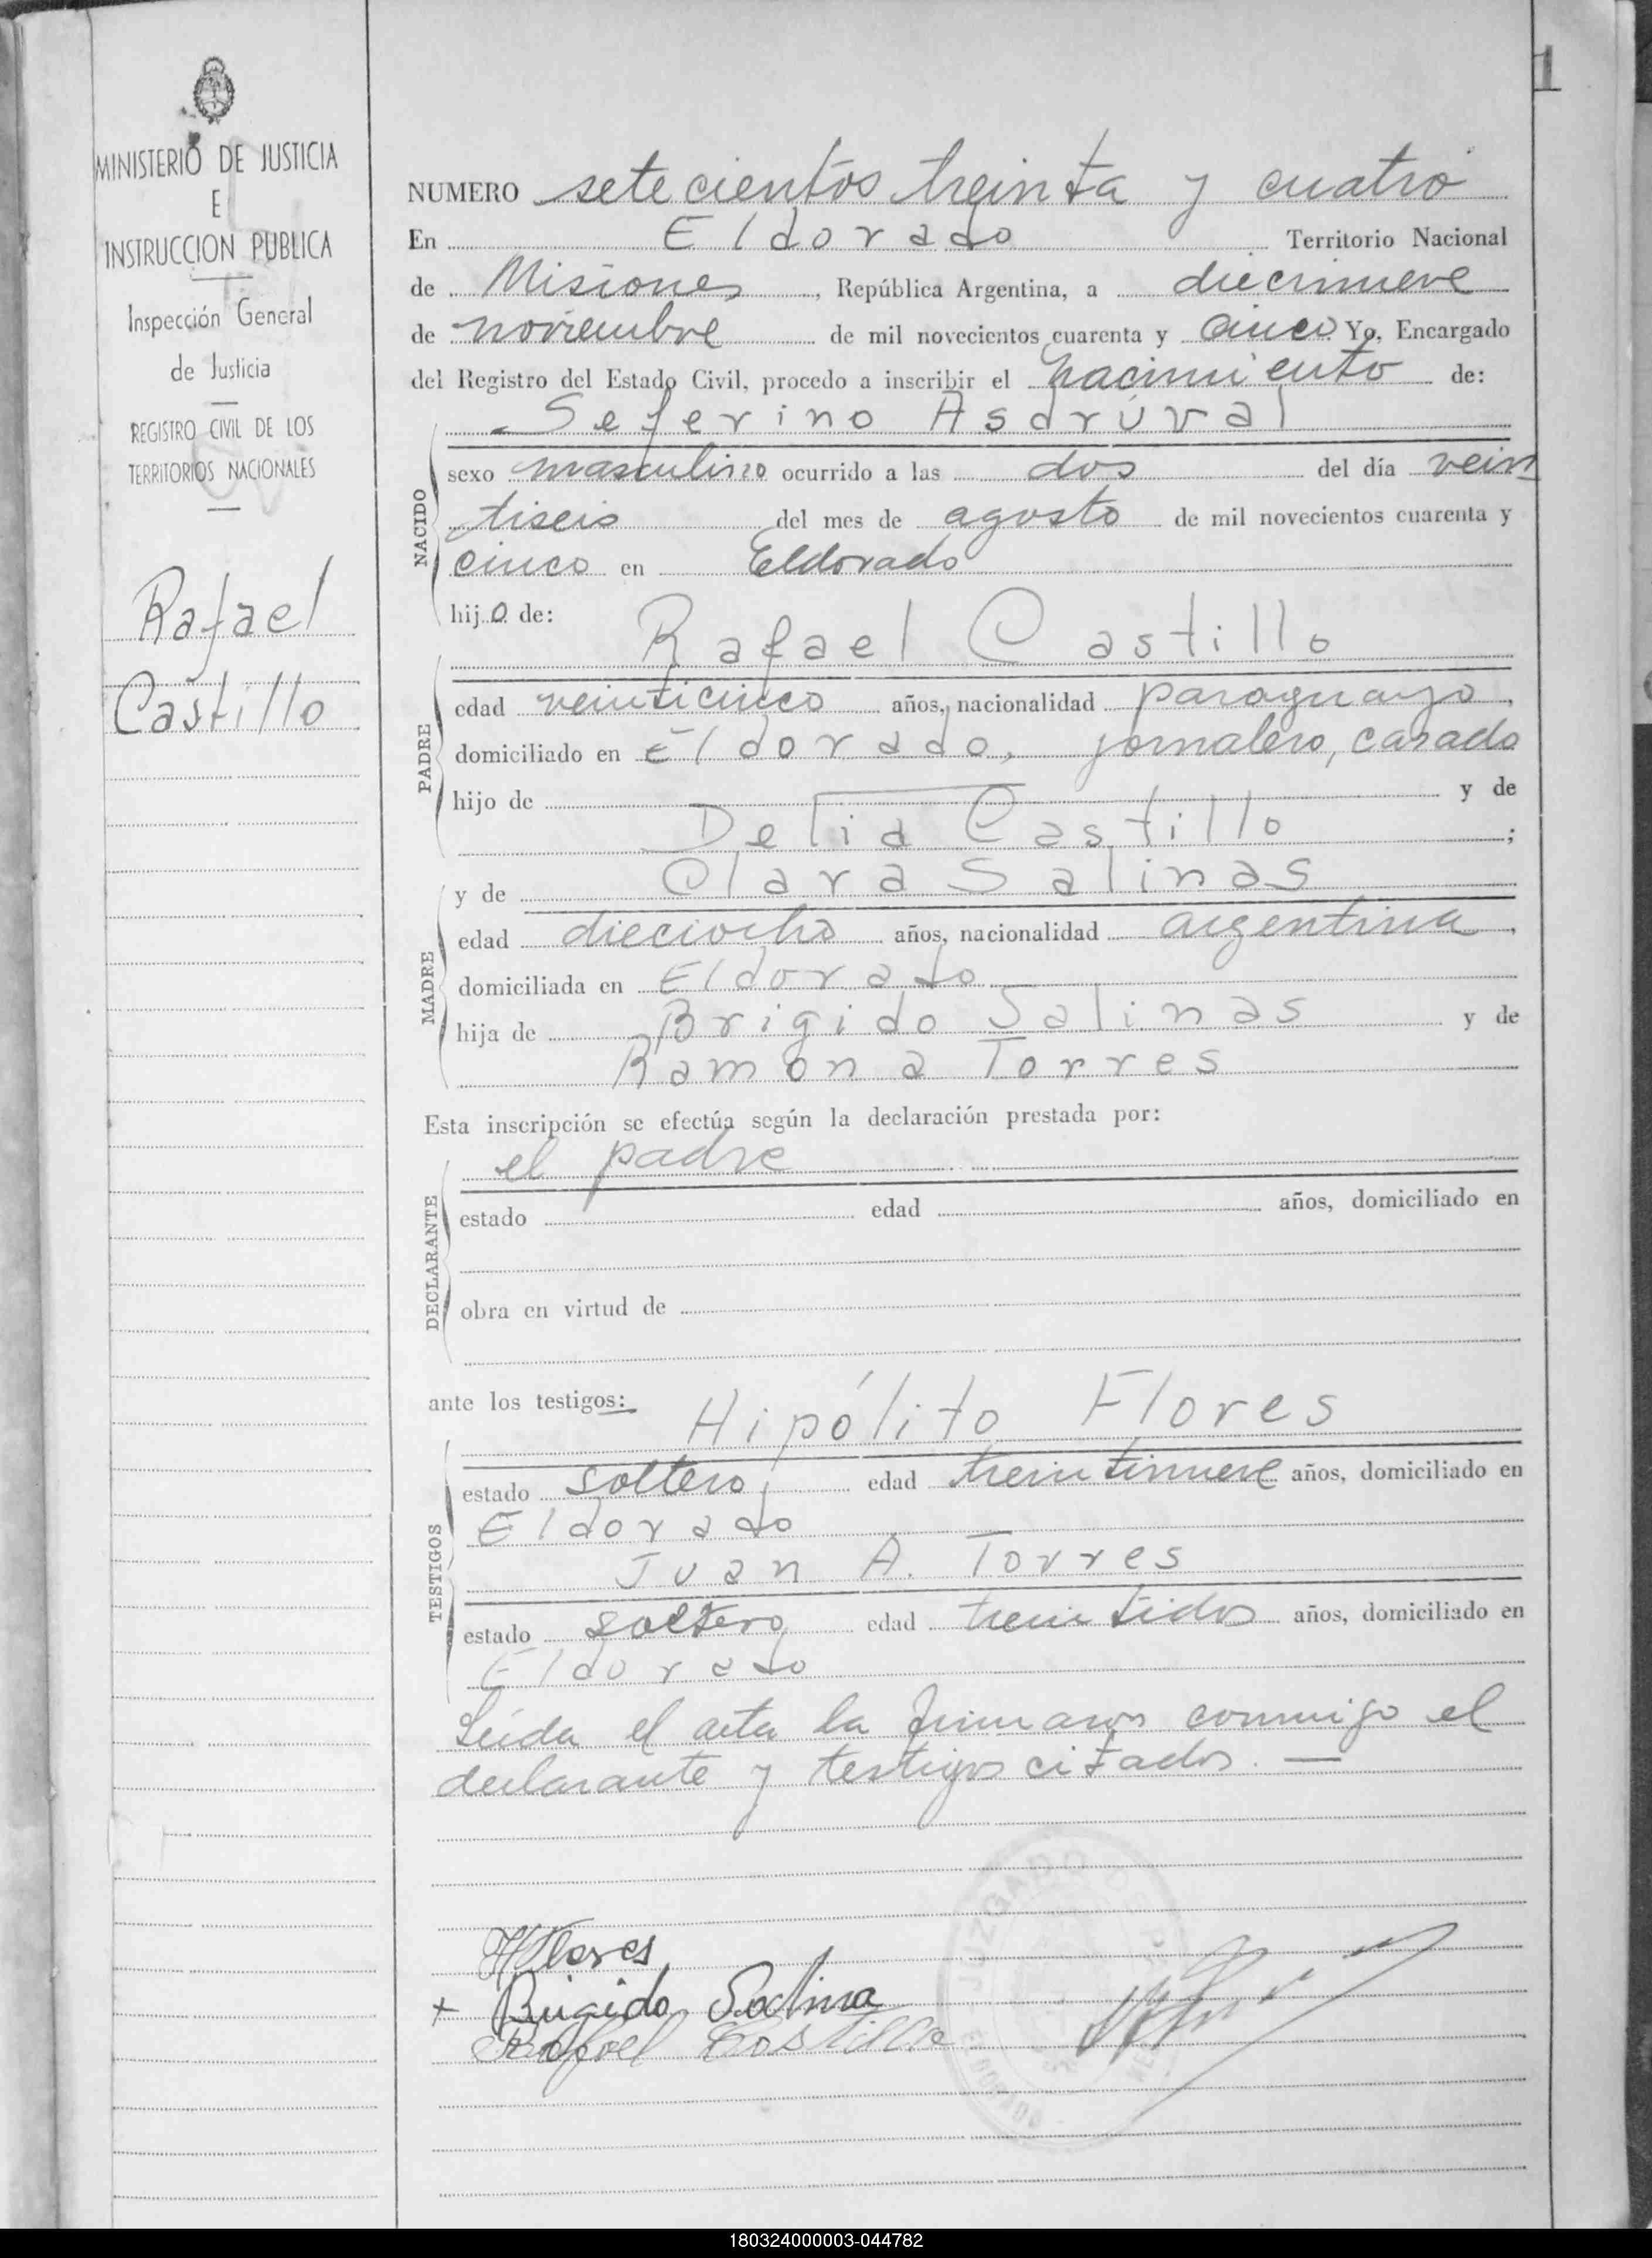 1
MINISTERIO DE JUSTICIA
E
INSTRUCCION PUBLICA
Inspección General
de Justicia
REGISTRO CIVIL DE LOS
TERRITORIOS NACIONALES
Rafael
Castillo
NUMERO setecientos treinta y cuatro
En Eldorado Territorio Nacional
de Misiones, República Argentina, a diecinueve
de noviembre de mil novecientos cuarenta y cinco Yo, Encargado
del Registro del Estado Civil, procedo a inscribir el nacimiento de:
Seferino Asdrúval
NACIDO
sexo masculino ocurrido a las dos del día vein
tiseis del mes de agosto de mil novecientos cuarenta y
cinco en Eldorado
hijo de:
Rafael Castillo
PADRE
edad veinticinco años, nacionalidad paraguayo,
domiciliado en Eldorado, jornalero, casado
hijo de y de
Delia Castillo ;
y de Clara Salinas
MADRE
edad dieciocho años, nacionalidad argentina,
domiciliada en Eldorado
hija de Brigido Salinas y de
Ramona Torres
Esta inscripción se efectúa según la declaración prestada por:
el padre
DECLARANTE
estado edad años, domiciliado en
obra en virtud de
ante los testigos:
Hipólito Flores
TESTIGOS
estado soltero edad treintinueve años, domiciliado en
Eldorado
Juan A. Torres
estado soltero edad treintidos años, domiciliado en
Eldorado
Leída el acta la firmaron conmigo el
declarante y testigos citados. —
HFlores
+ Brigido Salina
Rafael Castillo
JUZGADO DE
180324000003-044782